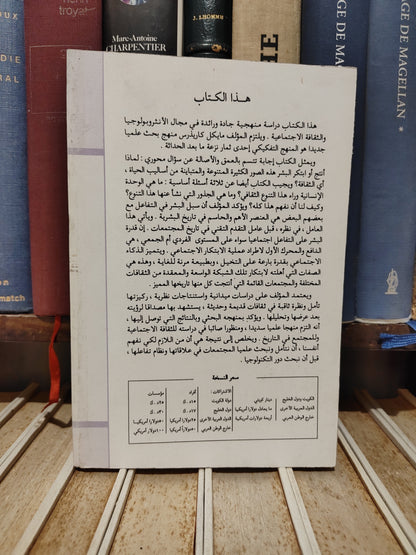 troyat
Marc-Antoine
CHARPENTIER
J. LHOMME
DE MAGELLAN
AGE DE MAGELLAN
match
هذا الكتاب
هذا الكتاب دراسة منهجية جادة ورائدة في مجال الأنثروبولوجيا
والثقافة الاجتماعية . ويلتزم المؤلف مايكل كاريذرس منهج بحث علميا
جديدا هو المنهج التفكيكي إحدى ثمار نزعة ما بعد الحداثة .
ويمثل الكتاب إجابة تتسم بالعمق والأصالة عن سؤال محوري : لماذا
أنتج أو ابتكر البشر هذه الصور الكثيرة المتنوعة والمتباينة من أساليب الحياة ،
أي الثقافة؟ ويجيب الكتاب أيضا عن ثلاثة أسئلة أساسية : ما هي الوحدة
الإنسانية وراء هذا التنوع الثقافي؟ وما هي الجذور التي نشأ عنها هذا التنوع؟
وكيف لنا أن نفهم هذا كله؟ ويؤكد المؤلف أن سبل البشر في التفاعل مع
بعضهم البعض هي العنصر الأهم والحاسم في تاريخ البشرية . ويأتي هذا
العامل ، في نظره ، قبل عامل التقدم التقني في تاريخ المجتمعات . إن قدرة
البشر على التفاعل اجتماعيا سواء على المستوى الفردي أم الجمعي ، هي
الدافع والمحرك الأول لاطراد عملية الابتكار الاجتماعي . ويتميز الذكاء
الاجتماعي بقدرة بارعة على التخيل ، وبطبيعة مرنة للغاية ، وهذه هي
الصفات التي أهلته لابتكار تلك الشبكة الواسعة والمعقدة من الثقافات
المختلفة والمجتمعات القائمة التي أنتجت كل منها تاريخها المميز .
ويعتمد المؤلف على دراسات ميدانية واستنتاجات نظرية ، ركيزتها
تأمل ونظرة ثاقبة في ثقافات قديمة وحديثة ، يستشهد بها مصداقا لرؤيته
بعد عرضها وتحليلها . ويؤكد بمنهجه البحثي وبالنتائج التي توصل إليها ،
أنه التزم منهجا علميا سديدا ، ومنظورا صائبا في دراسته للثقافة الاجتماعية
وللمجتمع في التاريخ . ويخلص إلى نتيجة هي أن من اللازم لكي نفهم
أنفسنا ، أن نتأمل ونبحث علميا المجتمعات في علاقاتها ونظام تفاعلها ،
قبل أن نبحث دور التكنولوجيا .
سعر النسخة
الكويت ودول الخليج دينار كويتي
الدول العربية الأخرى ما يعادل دولارا أمريكيا
خارج الوطن العربي أربعة دولارات أمريكية
الاشتراكات : أفراد مؤسسات
دولة الكويت ١٥د. ك ٢٥د. ك
دول الخليج ١٧د. ك ٣٠د. ك
الدول العربية الأخرى ٢٥دولارا أمريكيا ٥٠دولارا أمريكيا
خارج الوطن العربي ٥٠دولارا أمريكيا ١٠٠دولار أمريكي